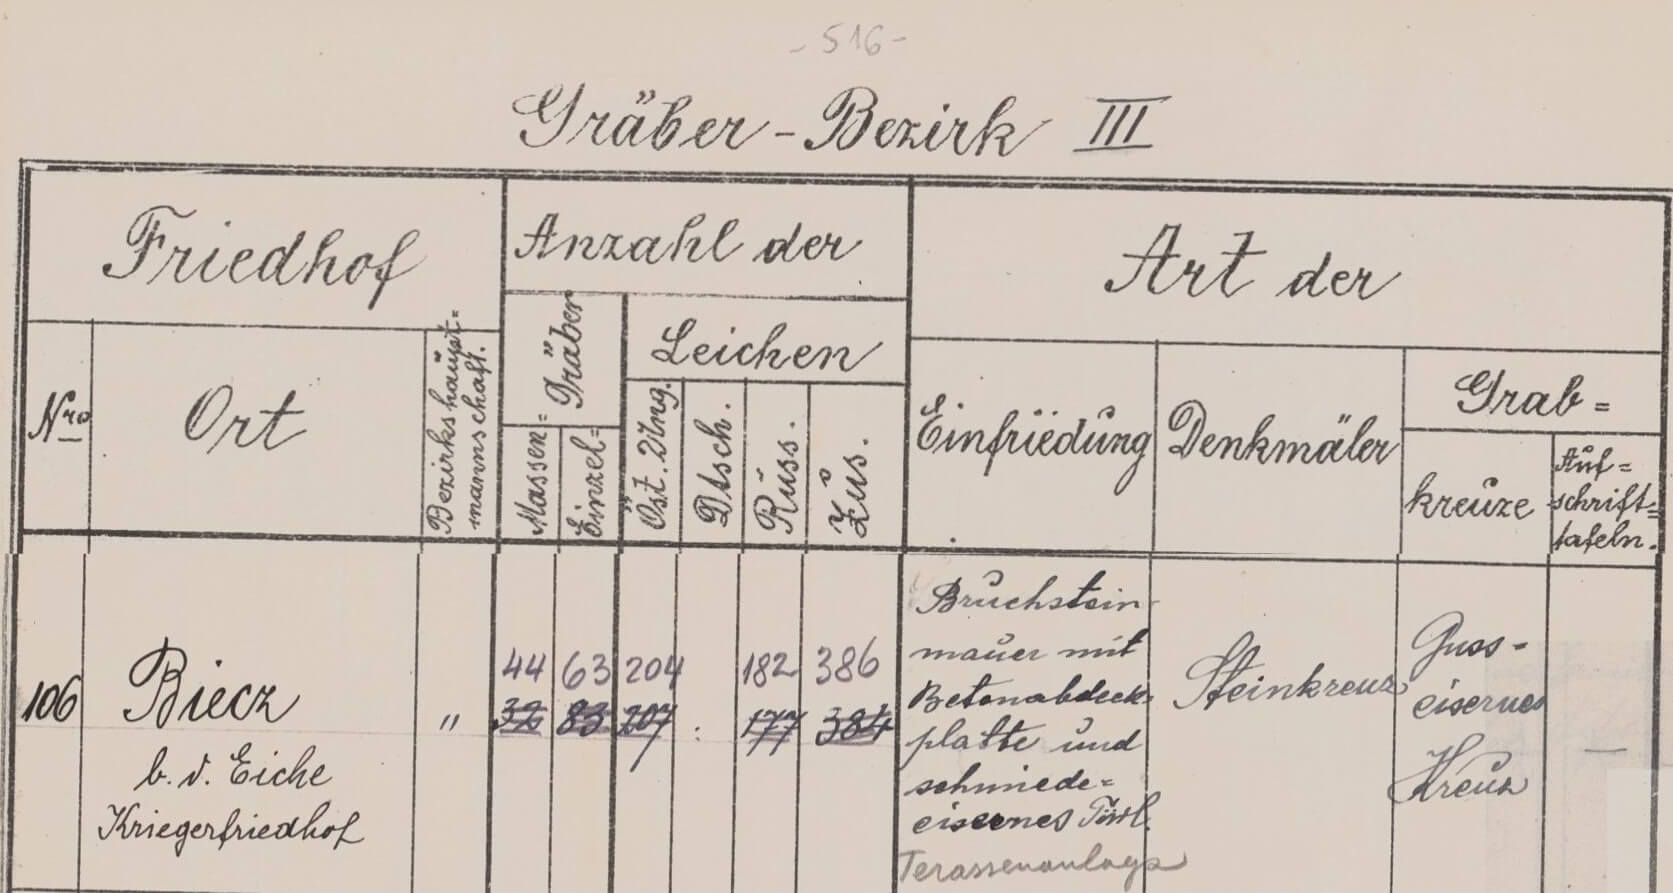 - 516 -
Gräber - Bezirk III
Friedhof
Anzahl der
Art der
Nro
Ort
Bezirkshaupt=
mannschaft.
Gräber
Massen=
Einzel=
Leichen
Öst. Ung.
Dtsch.
Russ.
Zus.
Einfriedung
Denkmäler
Grab=
kreuze
Auf=
schrift=
tafeln.
106
Biecz
b. d. Eiche
Kriegerfriedhof
"
44 63 204 182 386
32 83 207 177 384
Bruchstein-
mauer mit
Betonabdeck-
platte und
schmiede=
eisernes Türl.
Terassenanlage
Steinkreuz
Guss-
eisernes
Kreuz
—